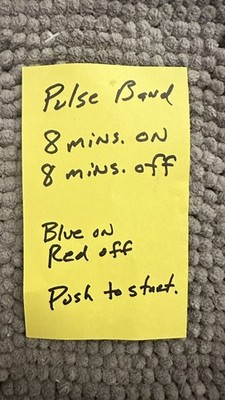 Pulse Band
8 mins. ON
8 mins. off
Blue on
Red off
Push to start.